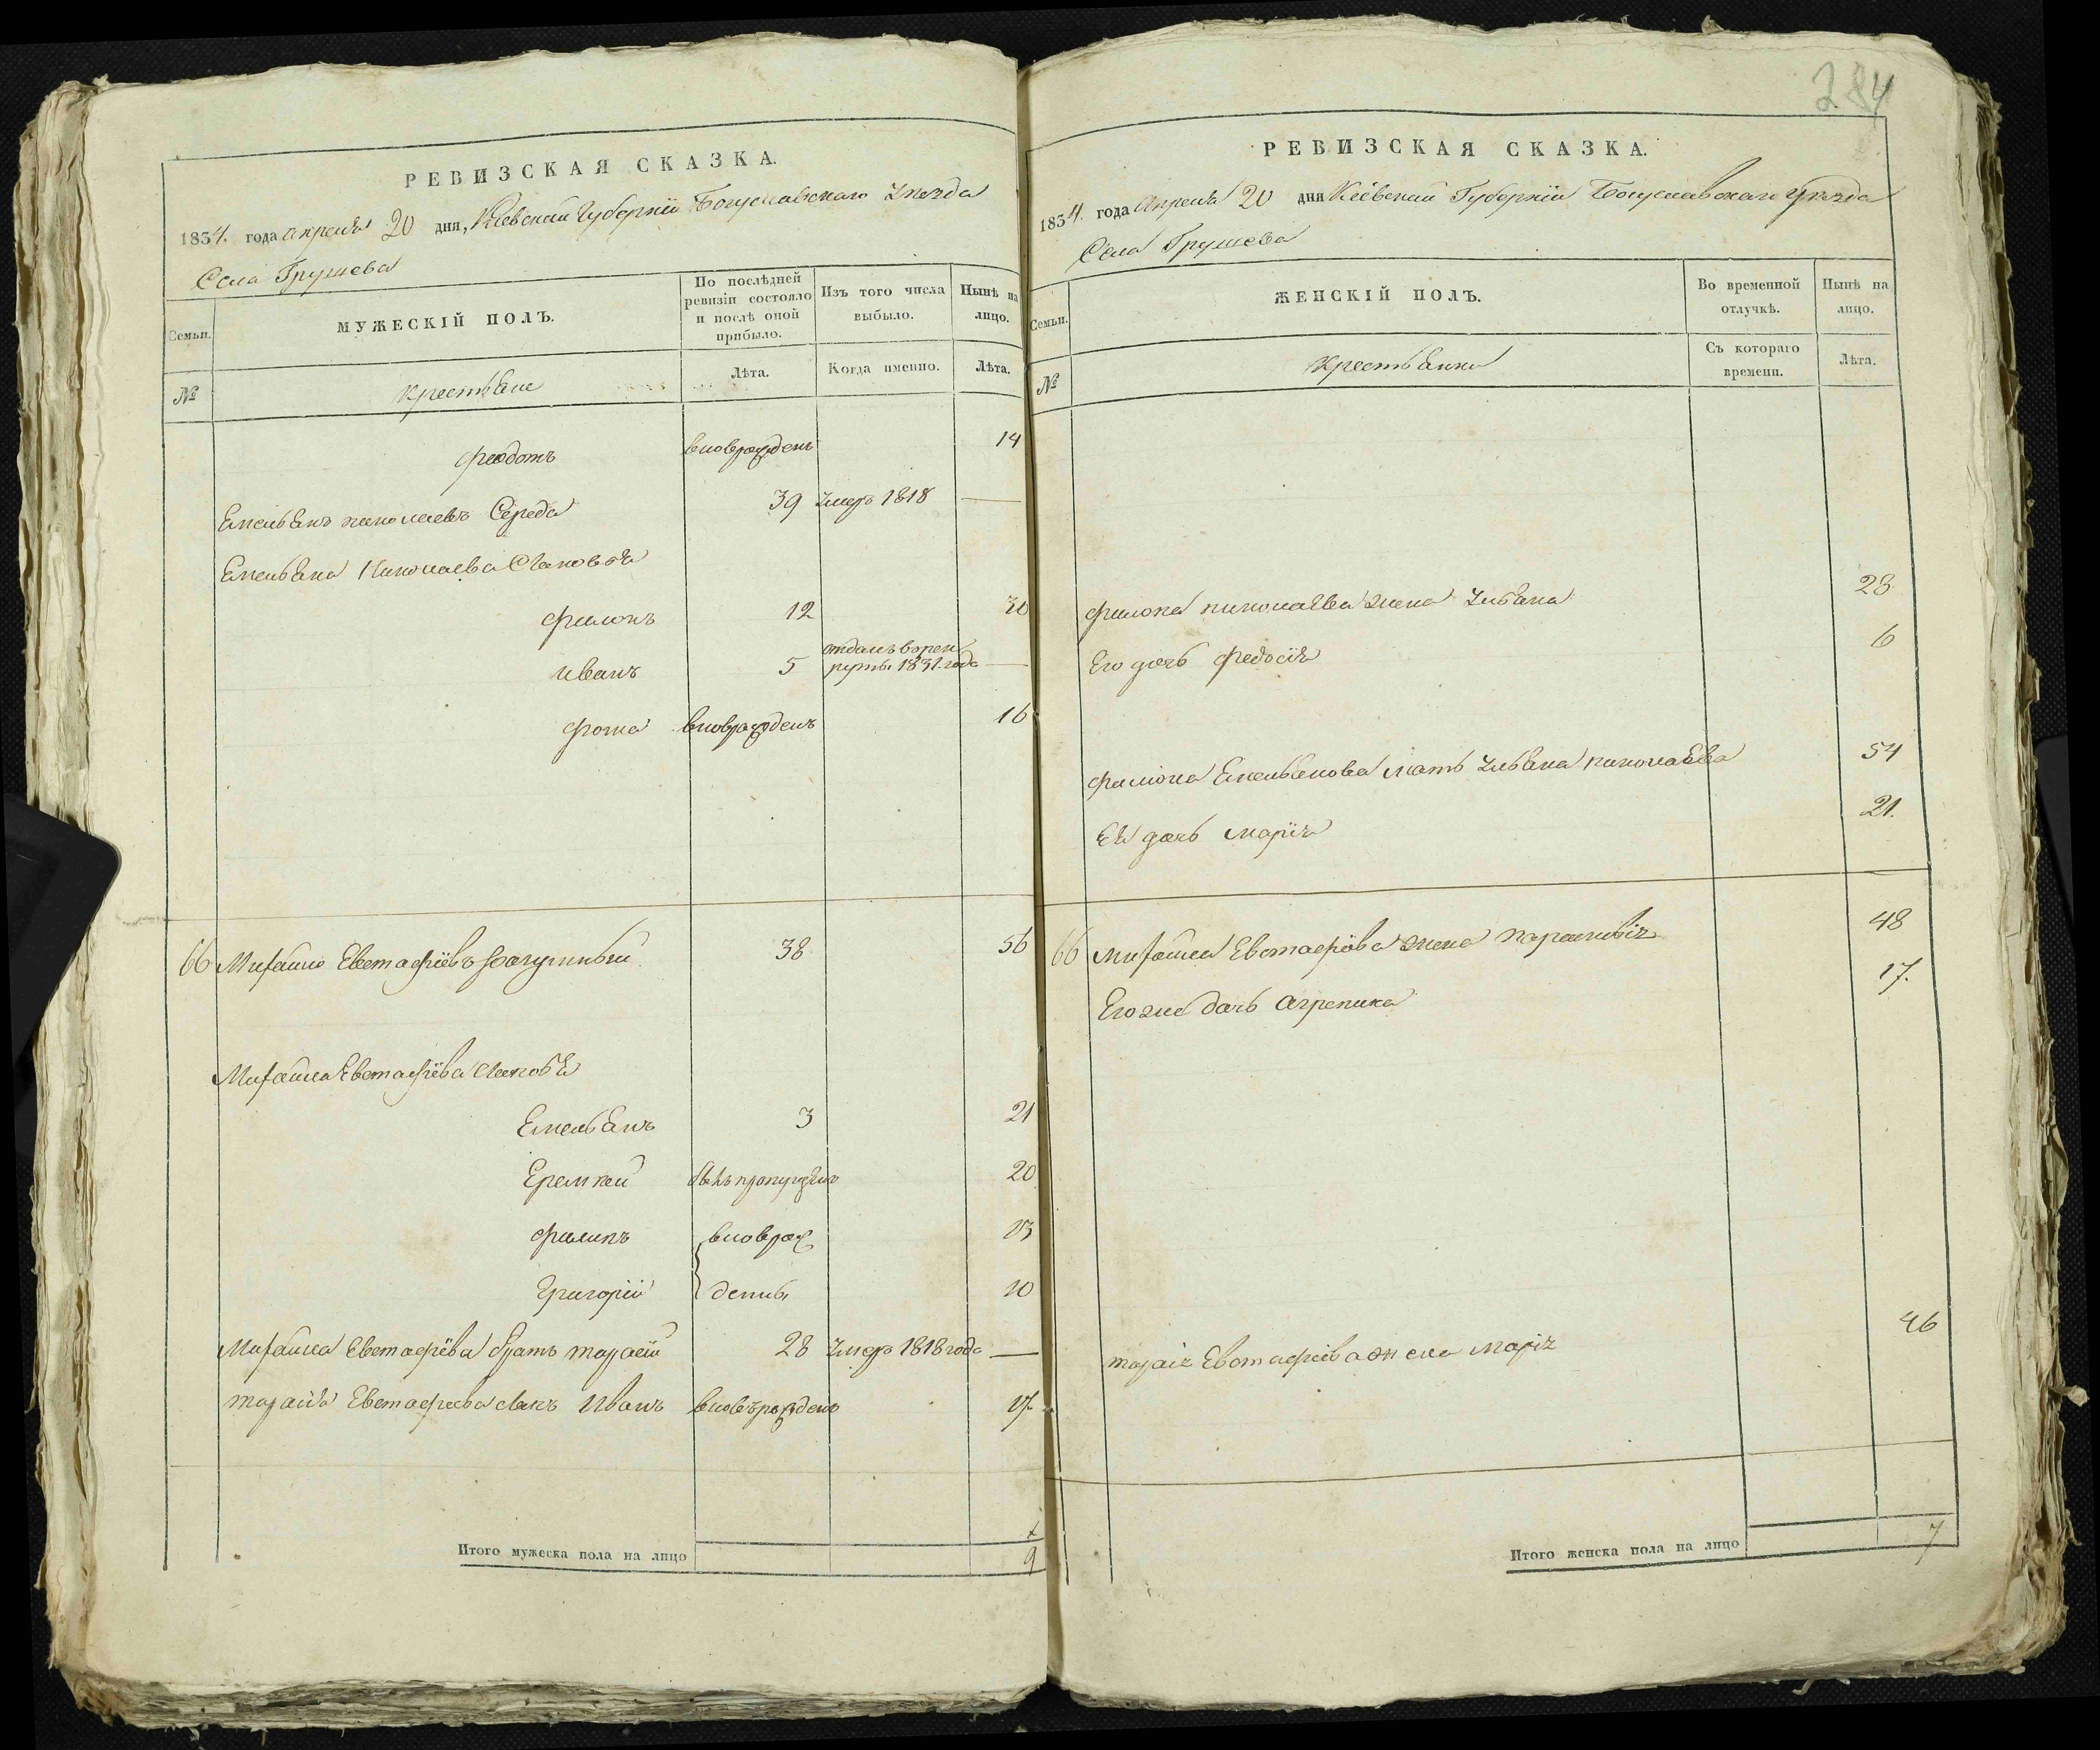 284
РЕВИЗСКАЯ СКАЗКА.
1834. года Апреля 20 дня, Кіевской Губерніи Богуславскаго Уезда
Села Грушева
Семьи.
МУЖЕСКІЙ ПОЛЪ.
По послѣдней ревизіи состояло и послѣ оной прибыло.
Изъ того числа выбыло.
Нынѣ на лицо.
№
крестьяне
Лѣта.
Когда именно.
Лѣта.
Феодотъ вновърожденъ 14
Емельянъ николаевъ Середа 39 умеръ 1818 —
Емельяна Николаева Сыновья
Филонъ 12 30
отданъ в рек
Иванъ 5 руты 1831. года —
Фома вновърожденъ 16
66 Михайло Евстафіевъ 38 56
Михайла Евстафіева Сыновья
Емельянъ 3 21
Еремкей былъ пропущенъ 20
Филипъ вноврож 13
Григорій дены 10
Михайла Евстафіева братъ тарасій 28 умеръ 1818 года —
тарасія Евстафиева сынъ Иванъ вновърожденъ 17
Итого мужеска пола на лицо 9
РЕВИЗСКАЯ СКАЗКА.
1834. года Апреля 20 дня Кіевской Губерніи Богуславскаго Уезда
Села Грушева
Семьи.
ЖЕНСКІЙ ПОЛЪ.
Во временной отлучкѣ.
Нынѣ на лицо.
№
крестьянки
Съ котораго времени.
Лѣта.
Филона николаева жена Ульяна 28
Его дочь Федосія 6
Филона Емельянова мать Ульяна николаева 54
Ея дочь марія 21.
66 Михайла Евстафіева жена Параскевія 48
Его же дочь Агрепина 17.
тарасія Евстафіева жена Марія 46
Итого женска пола на лицо 7